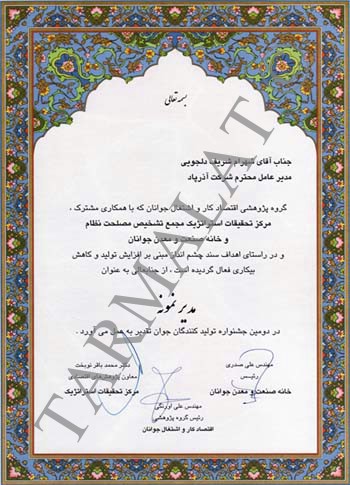 بسمه تعالی
جناب آقای شهرام شریف دلجویی
مدیر عامل محترم شرکت آذرپاد
گروه پژوهشی اقتصاد کار و اشتغال جوانان که با همکاری مشترک ،
مرکز تحقیقات استراتژیک مجمع تشخیص مصلحت نظام
و خانه صنعت و معدن جوانان
و در راستای اهداف سند چشم انداز مبنی بر افزایش تولید و کاهش
بیکاری فعال گردیده است ، از جنابعالی به عنوان
مدیر نمونه
در دومین جشنواره تولید کنندگان جوان تقدیر به عمل می آورد .
مهندس علی صدری
رئیس
خانه صنعت و معدن جوانان
دکتر محمد باقر نوبخت
معاون پژوهش های اقتصادی
مرکز تحقیقات استراتژیک
مهندس علی
رئیس گروه پژوهشی
اقتصاد کار و اشتغال جوانان
TARMALAT